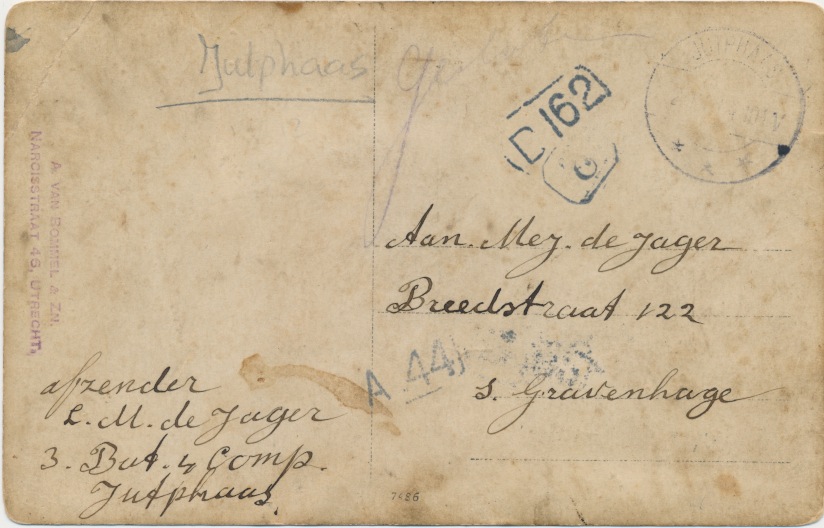 Jutphaas
JUTPHAAS
D 162
A. VAN BOMMEL & ZN.
NARCISSTRAAT 46, UTRECHT.
Aan. Mej. de Jager
Breedstraat 122
s. Gravenhage
A 44
afzender
L. M. de Jager
3. Bat. 4 Comp.
Jutphaas.
7486